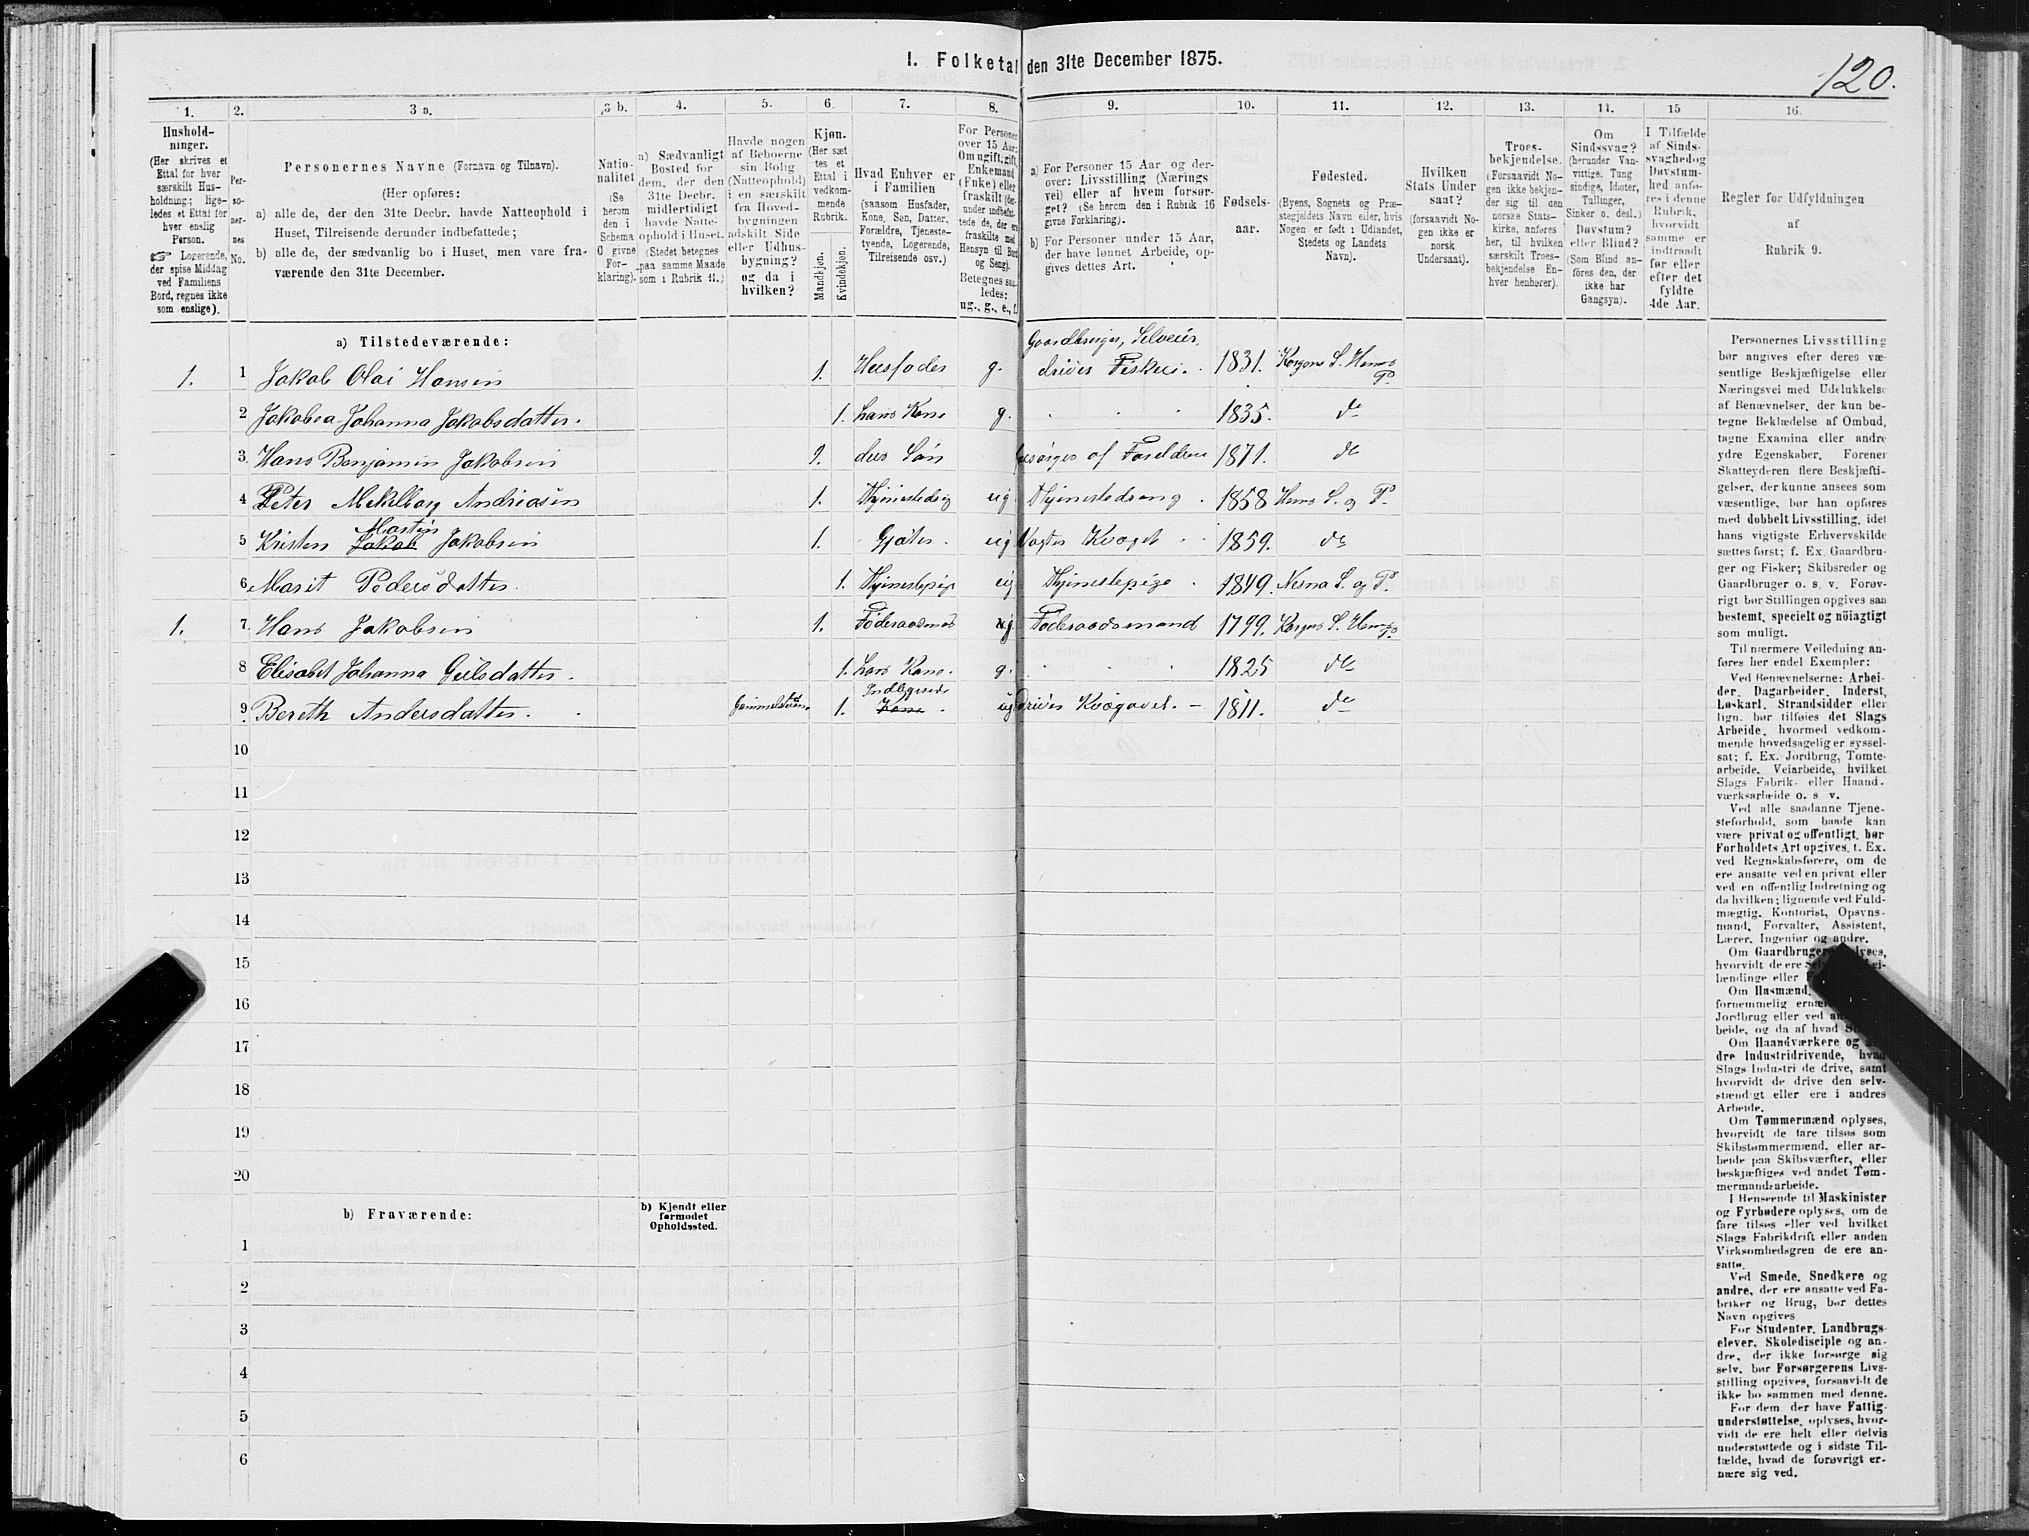 1. Folketal den 31te December 1875.
120.
1.
Hushold-
ninger.
(Her skrives et
Ettal for hver
særskilt Hus-
holdning; lige-
ledes et Ettal for
hver enslig
Person.
☞ Logerende,
der spise Middag
ved Familiens
Bord, regnes ikke
som enslige).
2.
Per-
so-
ner-
nes
No.
3 a.
Personernes Navne (Fornavn og Tilnavn).
(Her opføres:
a) alle de, der den 31te Decbr. havde Natteophold i
Huset, Tilreisende derunder indbefattede;
b) alle de, der sædvanlig bo i Huset, men vare fra-
værende den 31te December.
3 b.
Natio-
nalitet
(Se
herom
den i
Schema
0 givne
For-
klaring).
4.
a) Sædvanligt
Bosted for
dem, der den
31te Decbr.
midlertidigt
havde Natte-
ophold i Huset.
(Stedet betegnes
paa samme Maade
som i Rubrik 11.)
5.
Havde nogen
af Beboerne
sin Bolig
(Natteophold)
i en særskilt
fra Hoved-
bygningen
adskilt Side
eller Udhus-
bygning?
og da i
hvilken?
6.
Kjøn.
(Her sæt
tes et
Ettal i
vedkom-
mende
Rubrik.
Mandkjøn.
Kvindekjøn.
7.
Hvad Enhver er
i Familien
(saasom Husfader,
Kone, Søn, Datter,
Forældre, Tjeneste-
tyende, Logerende,
Tilreisende osv.)
8.
For Personer
over 15 Aar:
Om ugift, gift,
Enkemand
(Enke) eller
fraskilt (der-
under indbefat-
tede de, der ere
fraskilte med
Hensyn til Bord
og Seng).
Betegnes saa-
ledes:
ug., g., e., f.
9.
a) For Personer 15 Aar og der-
over: Livsstilling (Nærings
vei) eller af hvem forsør-
get? (Se herom den i Rubrik 16
givne Forklaring).
b) For Personer under 15 Aar,
der have lønnet Arbeide, op-
gives dettes Art.
10.
Fødsels-
aar.
11.
Fødested.
(Byens, Sognets og Præ-
stegjeldets Navn eller, hvis
Nogen er født i Udlandet,
Stedets og Landets
Navn).
12.
Hvilken
Stats Under
saat?
(forsaavidt No-
gen ikke er
norsk
Undersaat).
13.
Troes-
bekjendelse.
(Forsaavidt No
gen ikke bekjen-
der sig til den
norske Stats-
kirke, anføres
her, til hvilken
særskilt Troes-
bekjendelse En-
hver henhører).
14.
Om
Sindssvag?
(herunder Van-
vittige, Tung
sindige, Idioter,
Tullinger,
Sinker o. desl.)
Døvstum?
eller Blind?
(Som Blind an-
føres den, der
ikke har
Gangsyn).
15
I Tilfælde
af Sinds-
svaghed og
Døvstum-
hed anfø-
res i denne
Rubrik,
hvorvidt
samme er
indtraadt
før eller
efter det
fyldte
4de Aar.
16.
Regler for Udfyldningen
af
Rubrik 9.
a) Tilstedeværende:
1. 1 Jakob Olai Hansen 1. Husfader g. Gaardbruger, Selveier, driver Fiskeri. 1831. Korgens S. Hemnæs P.
2 Jakobea Johanna Jakobsdatter. 1. hans Kone g. 1835. do
3 Hans Benjamin Jakobsen 1. deres Søn forsørges af Forældrene 1871. do
4 Peter Mekelborg Andriasen 1. Thjenestedreng ug Thjenestedreng 1858 Hemnæs S. og P.
5 Kristen Jakob Martin Jakobsen 1. Gjæter. ug Vogter Kvæget 1859. do
6 Marit Pedersdatter 1. Thjenestepige ug Thjenestepige 1849. Nesna S. og P.
1. 7 Hans Jakobsen 1. Føderaadsmand g Føderaadsmand 1799. Korgens S. Hemnæs P.
8 Elisabet Johanna Geilsdatter. 1. hans Kone. g. 1825 do
9 Bereth Andersdatter. Gammelstuen 1. Kone Indlogerende ug driver Kvægavel. 1811. do
10
11
12
13
14
15
16
17
18
19
20
b) Fraværende:
b) Kjendt eller
formodet
Opholdssted.
1
2
3
4
5
6
Personernes Livsstilling
bør angives efter deres væ-
sentlige Beskjæftigelse eller
Næringsvei med Udelukkelse
af Benævnelser, der kun be-
tegne Beklædelse af Ombud,
tagne Examina eller andre
ydre Egenskaber. Forener
Skatteyderen flere Beskjæfti-
gelser, der kunne ansees som
væsentlige, bør han opføres
med dobbelt Livsstilling, idet
hans vigtigste Erhvervskilde
sættes først; f. Ex. Gaardbru-
ger og Fisker; Skibsreder og
Gaardbruger o. s. v. Forøv-
rigt bør Stillingen opgives saa
bestemt, specielt og nøiagtigt
som muligt.
Til nærmere Veiledning an-
føres her endel Exempler:
Ved Benævnelserne: Arbei-
der, Dagarbeider, Inderst,
Løskarl, Strandsidder eller
lign. bør tilføies det Slags
Arbeide, hvormed vedkom-
mende hovedsagelig er syssel-
sat; f. Ex. Jordbrug, Tomte-
arbeide, Veiarbeide, hvilket
Slags Fabrik- eller Haand-
værksarbeide o. s. v.
Ved alle saadanne Tjene-
steforhold, som baade kan
være privat og offentligt, bør
Forholdets Art opgives, t. Ex.
ved Regnskabsførere, om de
ere ansatte ved en privat eller
ved en offentlig Indretning og
da hvilken; lignende ved Fuld-
mægtig, Kontorist, Opsyns-
mand, Forvalter, Assistent,
Lærer, Ingeniør og andre.
Om Gaardbrugere oplyses,
hvorvidt de ere
lændinge eller
Om Husmænd,
fornemmelig
Jordbrug eller ved
beide, og da af hvad
Om Haandværkere og
dre Industridrivende, hvad
Slags Industri de drive, samt
hvorvidt de drive den selv-
stændigt eller ere i andres
Arbeide.
Om Tømmermænd oplyses,
hvorvidt de fare tilsøs som
Skibstømmermænd, eller ar-
beide paa Skibsværfter, eller
beskjæftiges ved andet Tøm-
mermandsarbeide.
I Henseende til Maskinister
og Fyrbødere oplyses, om de
fare tilsøs eller ved hvilket
Slags Fabrikdrift eller anden
Virksomhedsgren de ere an-
satte.
Ved Smede, Snedkere og
andre, der ere ansatte ved Fa-
briker og Brug, bør dettes
Navn opgives
For Studenter, Landbrugs-
elever, Skoledisciple og an-
dre, der ikke forsørge sig
selv, bør Forsørgerens Livs-
stilling opgives, forsaavidt de
ikke bo sammen med denne.
For dem der have Fattig-
understøttelse, oplyses, hvor-
vidt de ere helt eller delvis
understøttede og i sidste Til-
fælde, hvad de forøvrigt er-
nære sig ved.